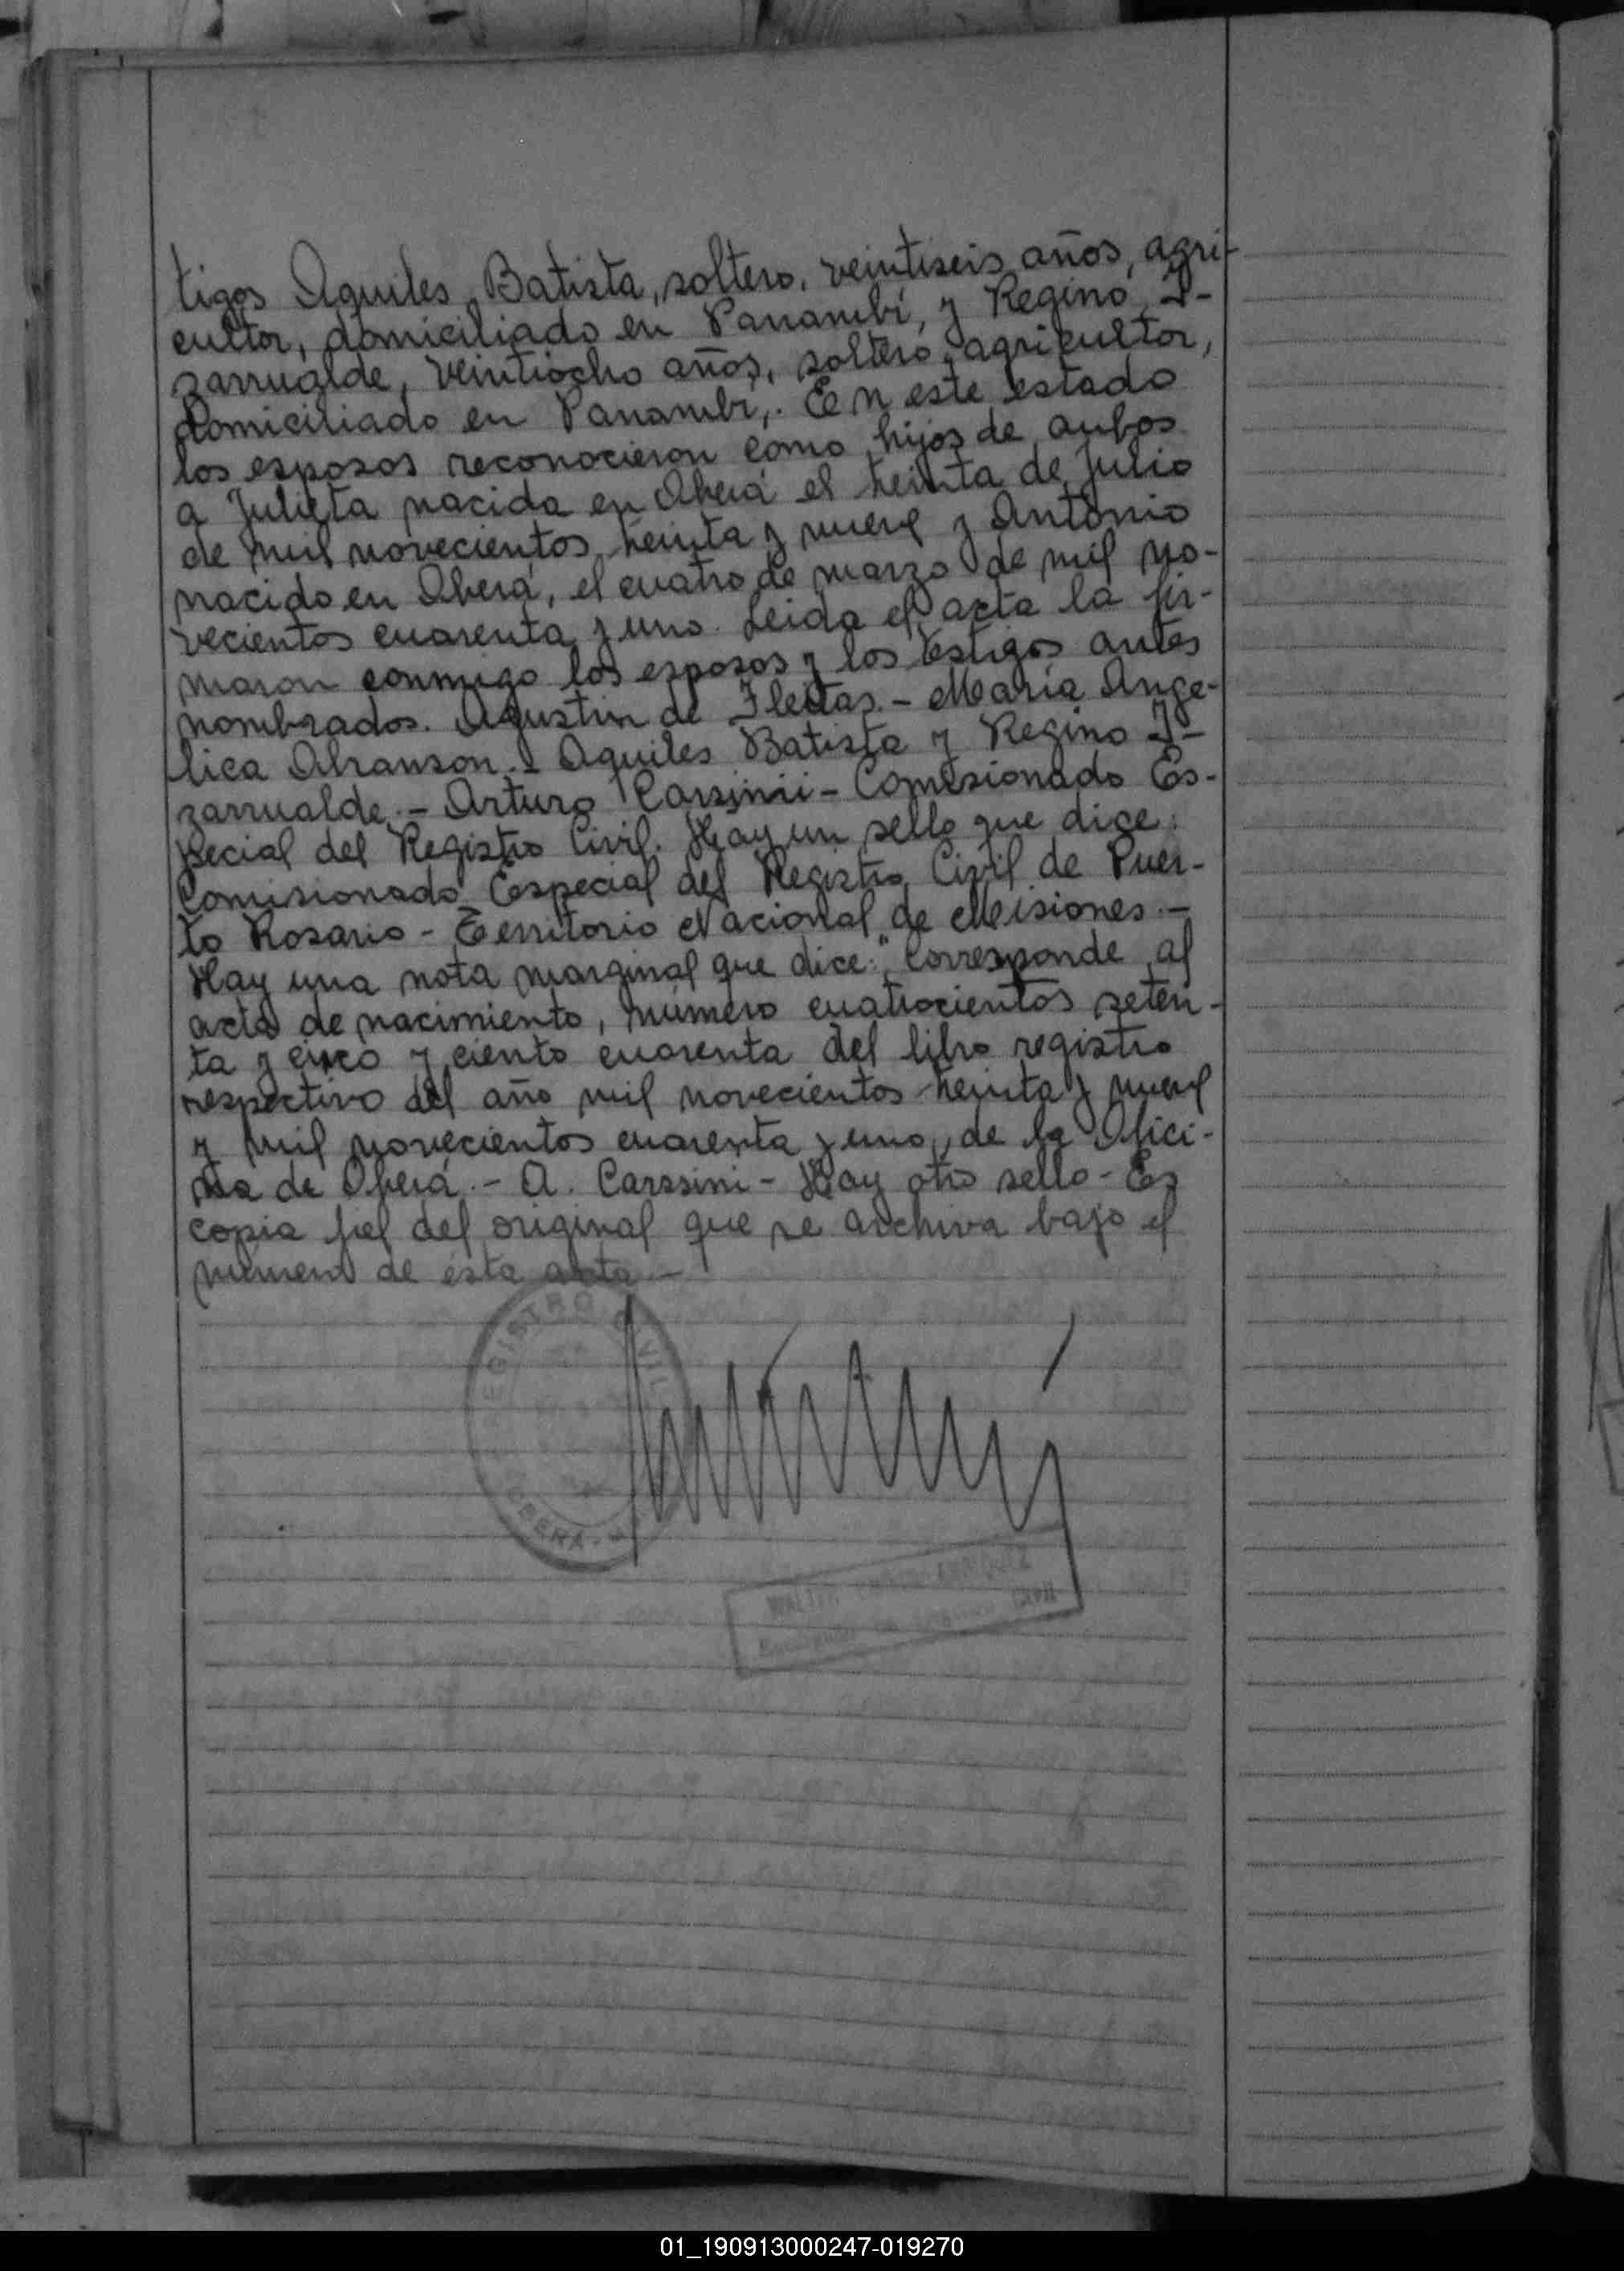 tigos Aquiles Batista, soltero, veintiseis años, agri-
cultor, domiciliado en Panambí, y Regino I-
zarrualde, veintiocho años, soltero, agricultor,
domiciliado en Panambí,. En este estado
los esposos reconocieron como hijos de ambos
a Julieta nacida en Oberá el treinta de Julio
de mil novecientos treinta y nueve y Antonio
nacido en Oberá, el cuatro de marzo de mil no-
vecientos cuarenta y uno. Leida el acta la fir-
maron conmigo los esposos y los testigos antes
nombrados. Agustin de Fleitas.- Maria Ange-
lica Abranson.- Aquiles Batista y Regino I-
zarrualde.- Arturo Carssini - Comisionado Es-
pecial del Registro Civil. Hay un sello que dice:
Comisionado Especial del Registro Civil de Puer-
to Rosario - Territorio Nacional de Misiones.-
Hay una nota marginal que dice: "Corresponde al
acta de nacimiento, número cuatrocientos seten-
ta y cinco y ciento cuarenta del libro registro
respectivo del año mil novecientos treinta y nueve
y mil novecientos cuarenta y uno, de la Ofici-
na de Oberá.- A. Carssini - Hay otro sello - Es
copia fiel del original que se archiva bajo el
número de ésta acta.-
REGISTRO CIVIL
OBERÁ -
CIVIL
01_190913000247-019270